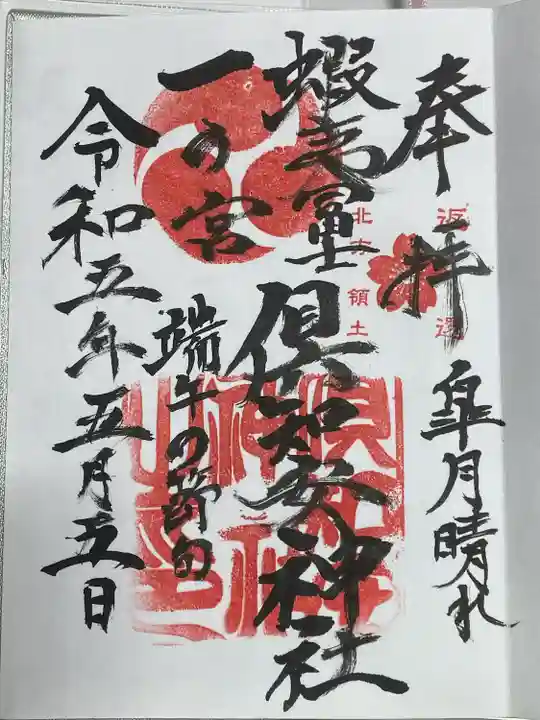 奉拝
皐月晴れ
返還
北方領土
蝦夷富士
倶知安神社
一の宮
端午の節句
令和五年五月五日